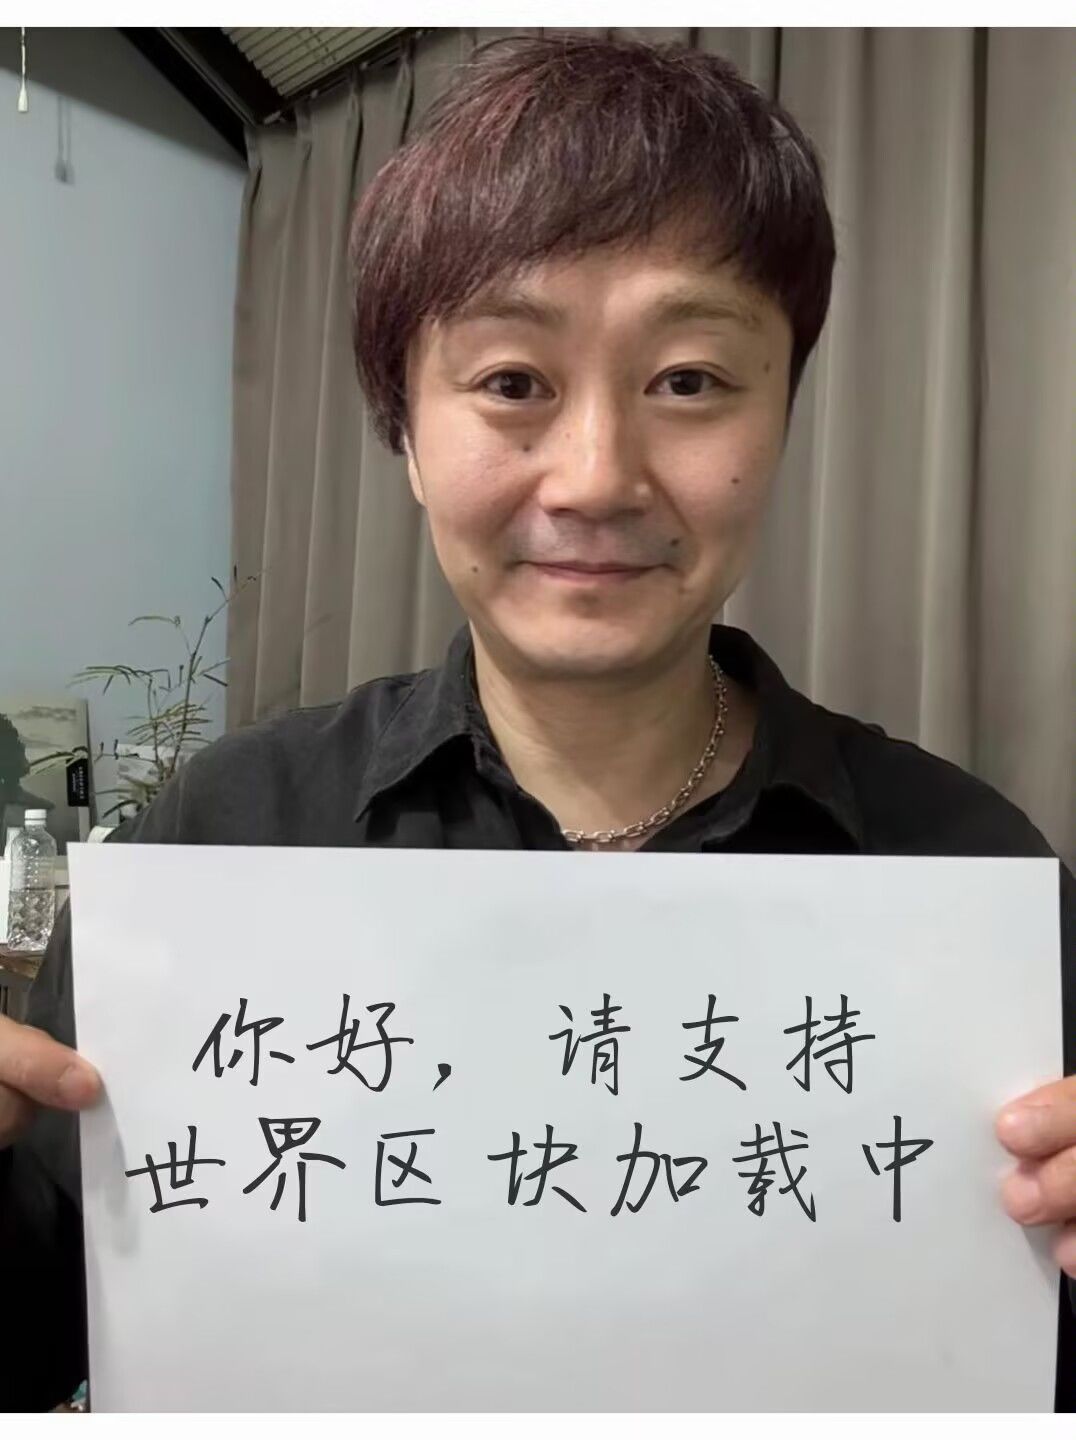 你好，请支持
世界区块加载中